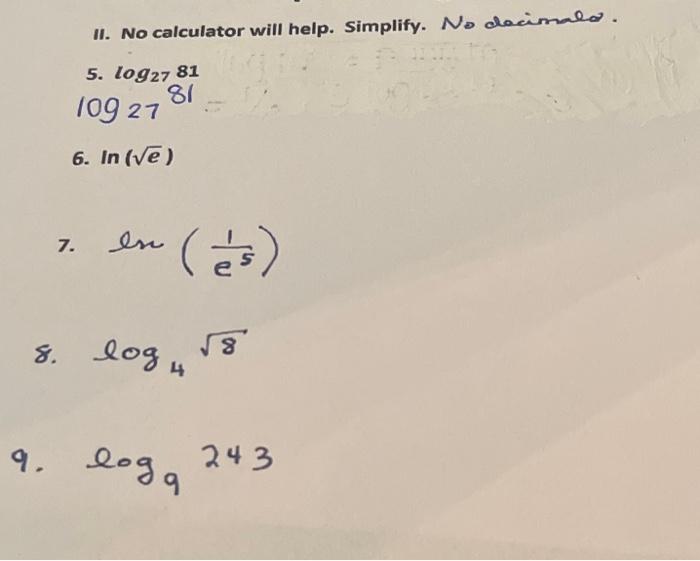 II. No calculator will help. Simplify. No decimals.
5. log₂₇ 81
log₂₇ 81
6. ln (√e)
7. ln (1/e⁵)
8. log₄ √8
9. log₉ 243